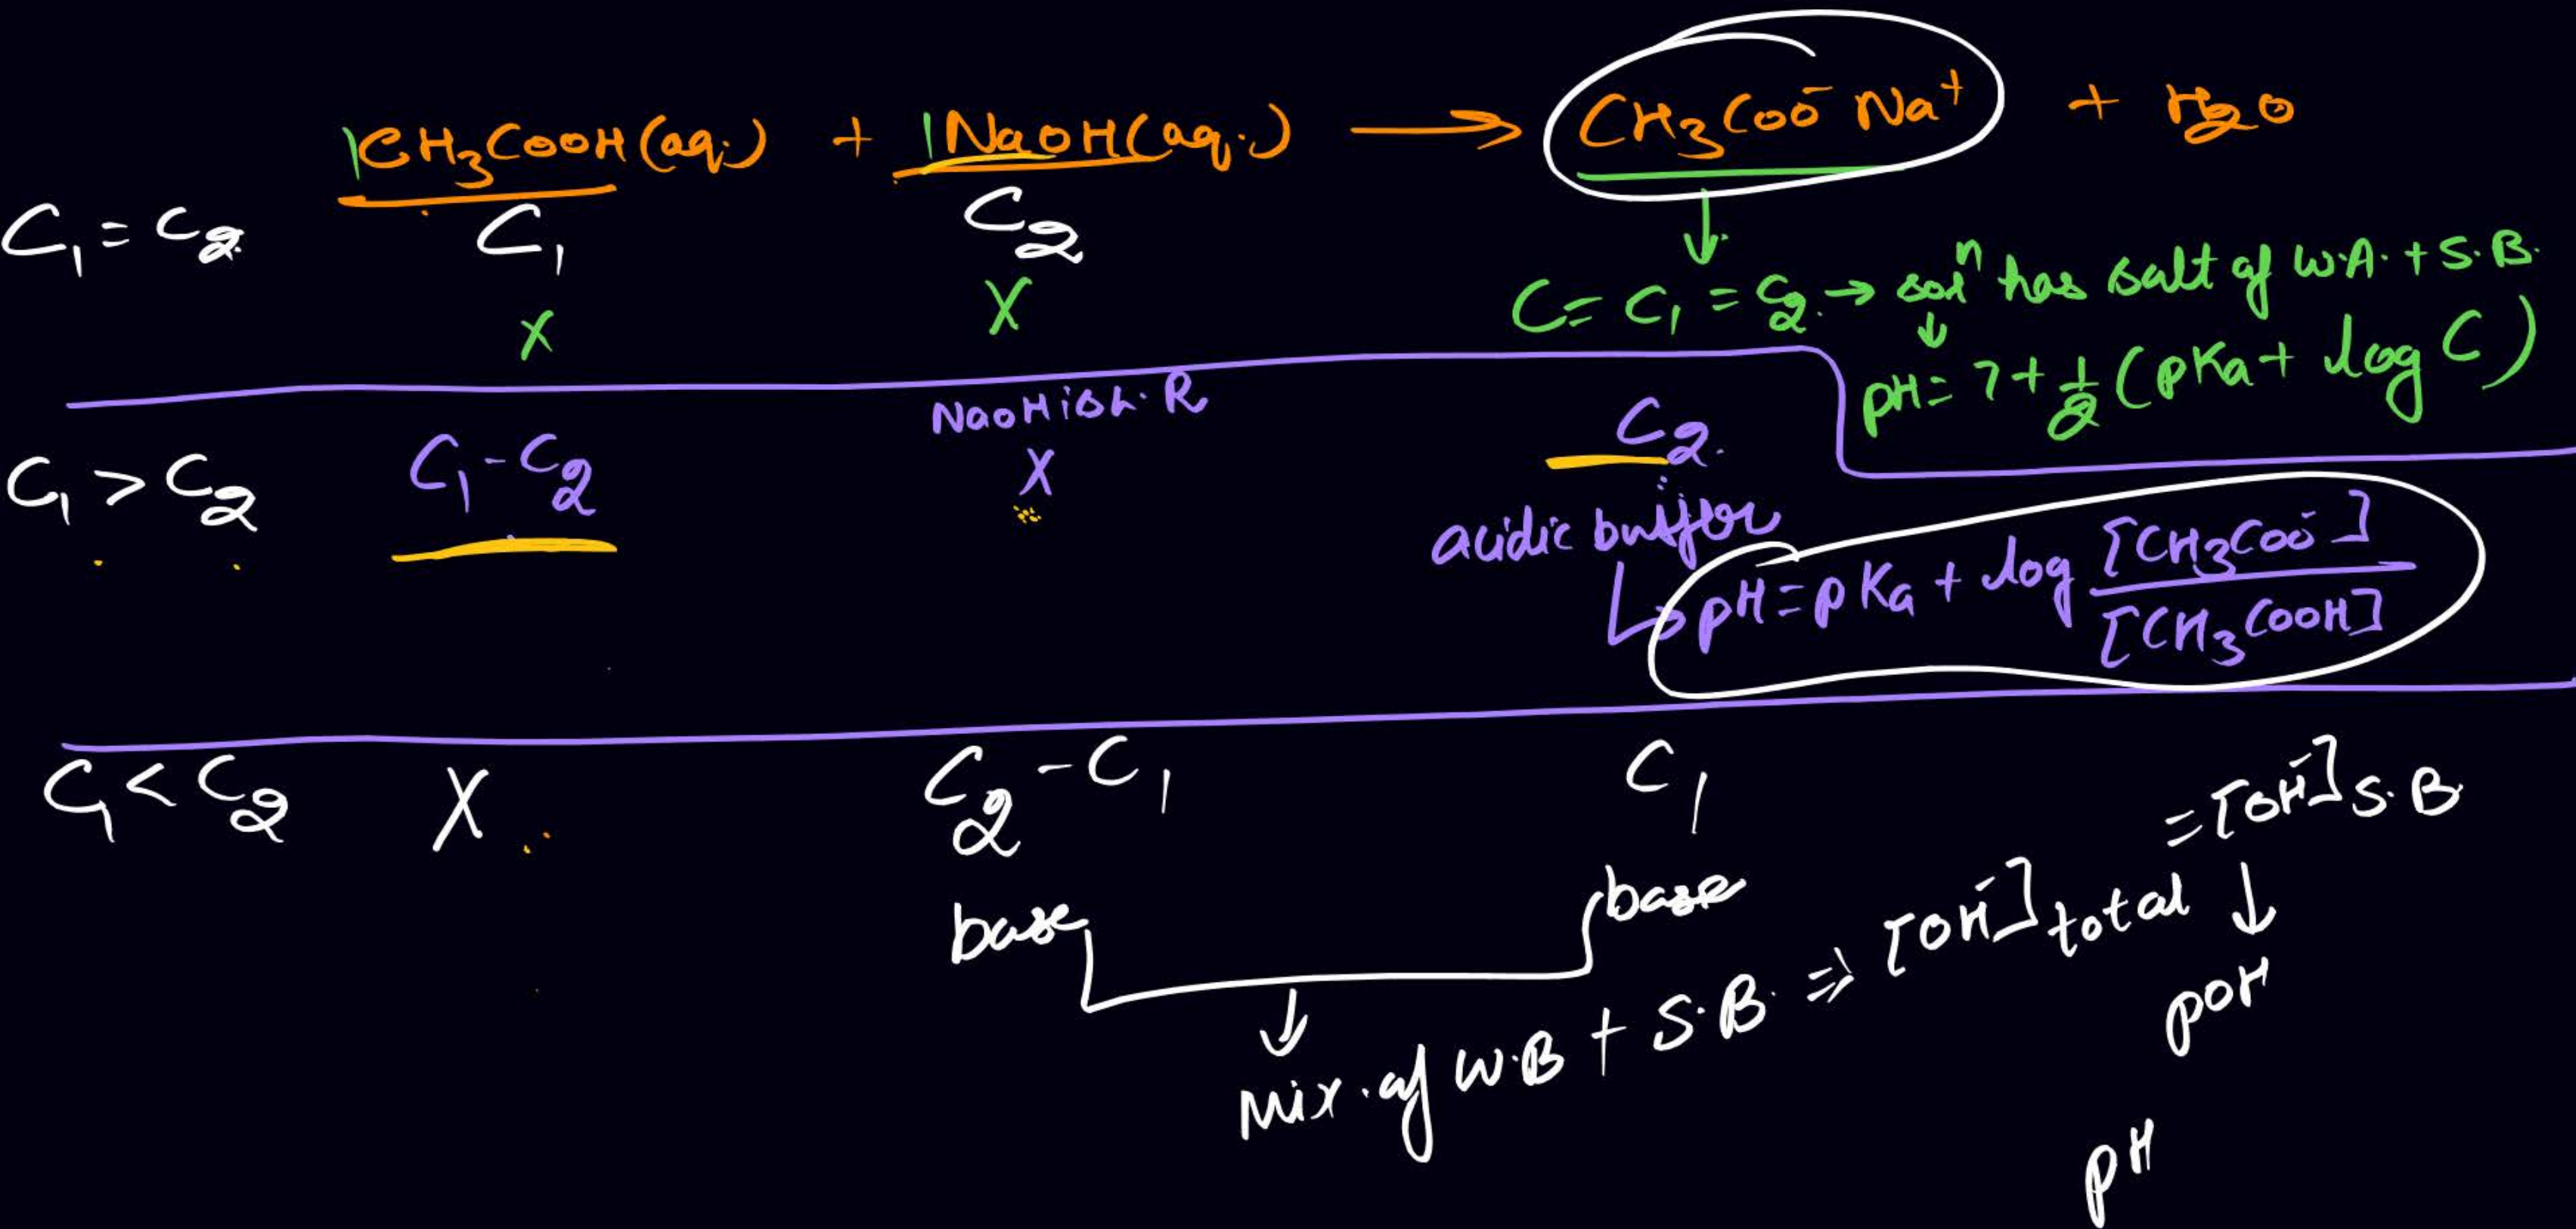 1CH₃COOH(aq.) + 1NaOH(aq.) ⟶ CH₃COO⁻Na⁺ + H₂O
C₁ = C₂ C₁ C₂
X X C = C₁ = C₂ → solⁿ has salt of W.A. + S.B.
↓
pH = 7 + 1/2 (pKa + log C)
NaOH is L.R
C₁ > C₂ C₁ - C₂ X C₂
acidic buffer
↳ pH = pKa + log [CH₃COO⁻]/[CH₃COOH]
C₁ < C₂ X C₂ - C₁ C₁
base base
↓
Mix. of W.B + S.B. ⇒ [OH⁻]total = [OH⁻]S.B
↓
pOH
pH